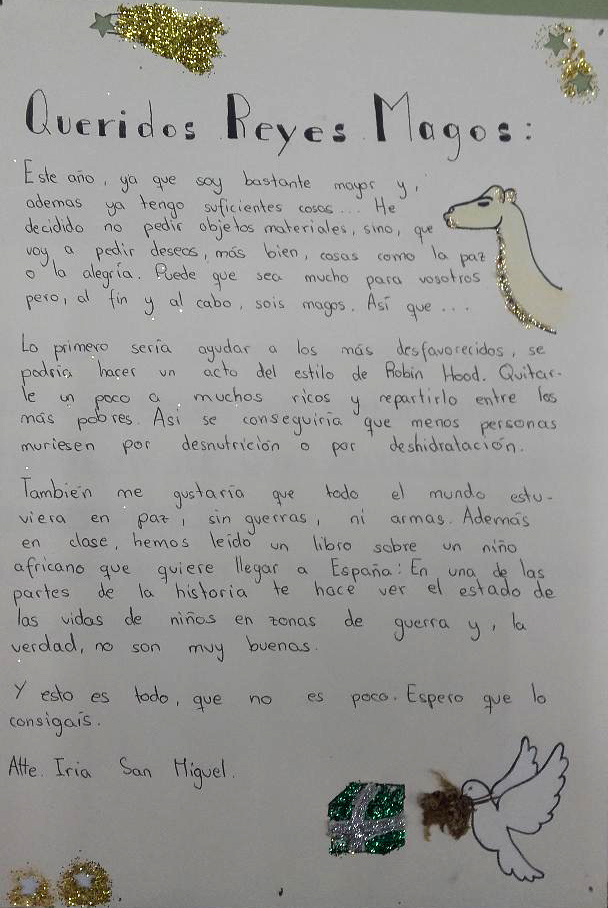 Queridos Reyes Magos:
Este año, ya que soy bastante mayor y,
ademas ya tengo suficientes cosas... He
decidido no pedir objetos materiales, sino, que
voy a pedir deseos, más bien, cosas como la paz
o la alegría. Puede que sea mucho para vosotros
pero, al fin y al cabo, sois magos. Así que ...
Lo primero sería ayudar a los más desfavorecidos, se
podría hacer un acto del estilo de Robin Hood. Quitar-
le un poco a muchos ricos y repartirlo entre los
más pobres. Asi se conseguiría que menos personas
muriesen por desnutrición o por deshidratación.
También me gustaría que todo el mundo estu-
viera en paz, sin guerras, ni armas. Además
en clase, hemos leído un libro sobre un niño
africano que quiere llegar a España: En una de las
partes de la historia te hace ver el estado de
las vidas de niños en zonas de guerra y, la
verdad, no son muy buenas.
Y esto es todo, que no es poco. Espero que lo
consigaís.
Atte. Iria San Miguel.